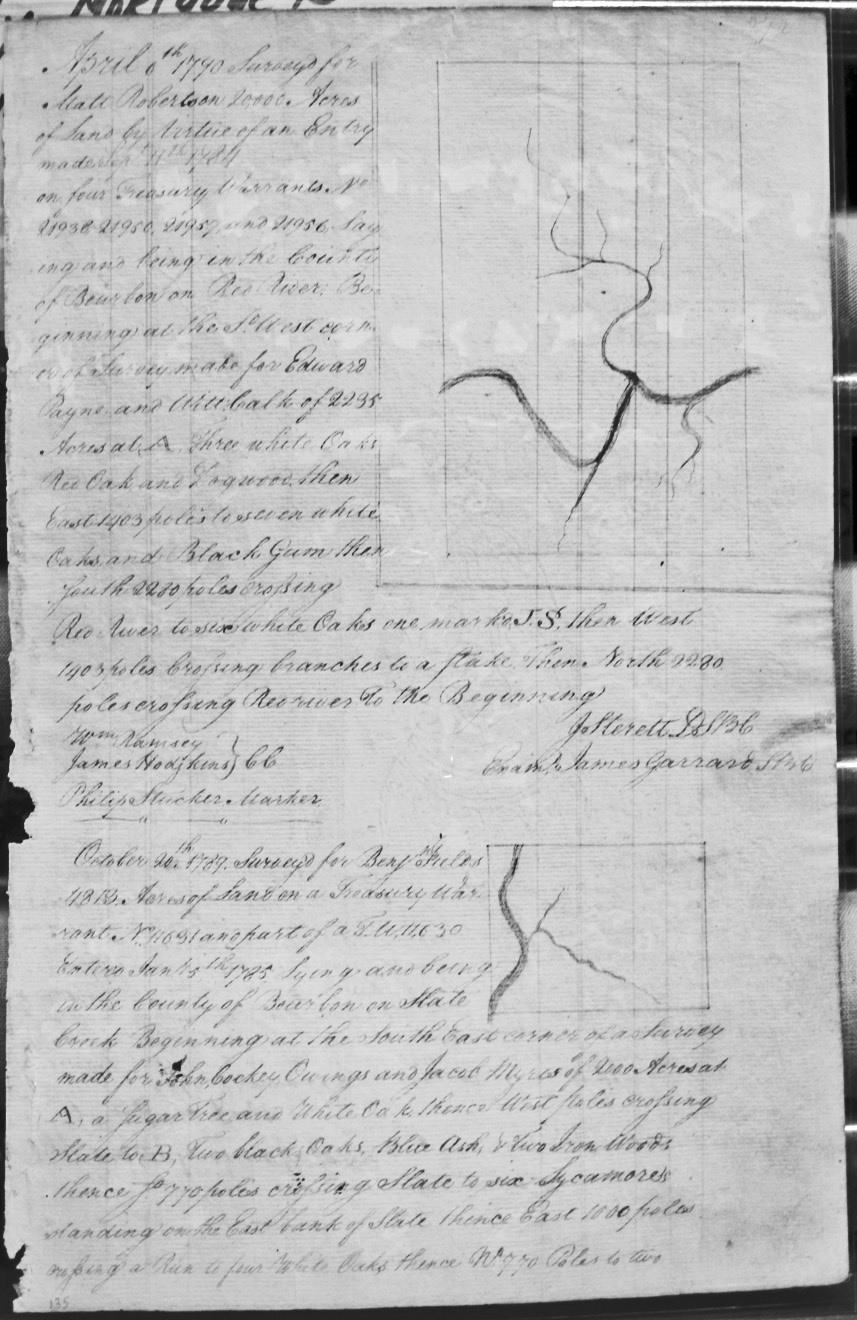 April 6th 1790 Surveyd for
Matt Robertson 20000 Acres
of Land by Virtue of an Entry
made 1784
on four Treasury Warrants No
21938 21950, 21957, and 21956 Lay
ing and being in the County
of Bourbon on Red River. Be
ginning at the So West corn
er of Survey made for Edward
Payne and Will Calk of 2235
Acres at A, Three white Oaks
Red Oak and Dogwood, then
East 1403 poles to seven white
Oaks, and Black Gum then
South 2280 poles crossing
Red River to six white Oaks one markd J.S. then West
1403 poles Crossing branches to a Stake. Then North 2280
poles crossing Red river To the Beginning
J Sterett D S B C
Wm Ramsey
James Hodgkins } CC
Examd James Garrard S B C
Philip Marker
October 20th 1789. Surveyd for Benj Fields
4813 Acres of Land on a Treasury War
rant No 11631 and part of a T.W. 11,630
Entered Jany 5th 1785 lying and being
in the County of Bourbon on Slate
Creek Beginning at the South East corner of a Survey
made for John Cockey Owings and Jacob Myres of 2000 Acres at
A, a Sugar Tree and White Oak, thence West poles crossing
Slate to B, Two black Oaks, Blue Ash, & two Iron Woods
thence So 770 poles crossing Slate to six Sycamores
standing on the East bank of Slate thence East 1000 poles
crossing a Run to four White Oaks thence No 770 Poles to two
135